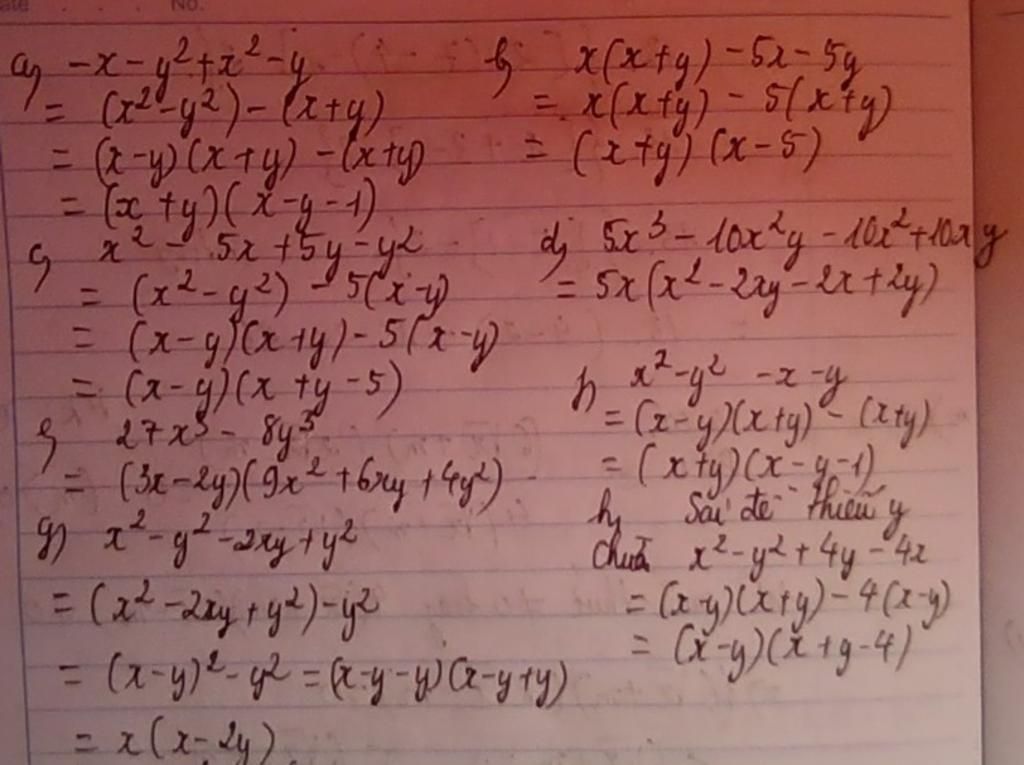 No.
a) -x - y² + x² - y
= (x² - y²) - (x + y)
= (x - y)(x + y) - (x + y)
= (x + y)(x - y - 1)
b) x(x + y) - 5x - 5y
= x(x + y) - 5(x + y)
= (x + y)(x - 5)
c) x² - 5x + 5y - y²
= (x² - y²) - 5(x - y)
= (x - y)(x + y) - 5(x - y)
= (x - y)(x + y - 5)
d) 5x³ - 10x²y - 10x² + 10xy
= 5x(x² - 2xy - 2x + 2y)
e) 27x³ - 8y³
= (3x - 2y)(9x² + 6xy + 4y²)
f) x² - y² - x - y
= (x - y)(x + y) - (x + y)
= (x + y)(x - y - 1)
g) x² - y² - 2xy + y²
= (x² - 2xy + y²) - y²
= (x - y)² - y² = (x - y - y)(x - y + y)
= x(x - 2y)
h) Sai đề thiếu y
chữa x² - y² + 4y - 4x
= (x - y)(x + y) - 4(x - y)
= (x - y)(x + y - 4)